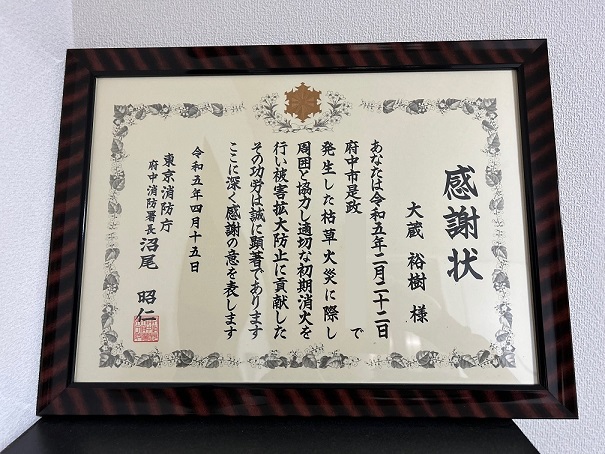 感謝状
大蔵 裕樹 様
あなたは令和五年二月二十二日
府中市是政 で
発生した枯草火災に際し
周囲と協力し適切な初期消火を
行い被害拡大防止に貢献した
その功労は誠に顕著であります
ここに深く感謝の意を表します
令和五年四月十五日
東京消防庁
府中消防署長 沼尾 昭仁